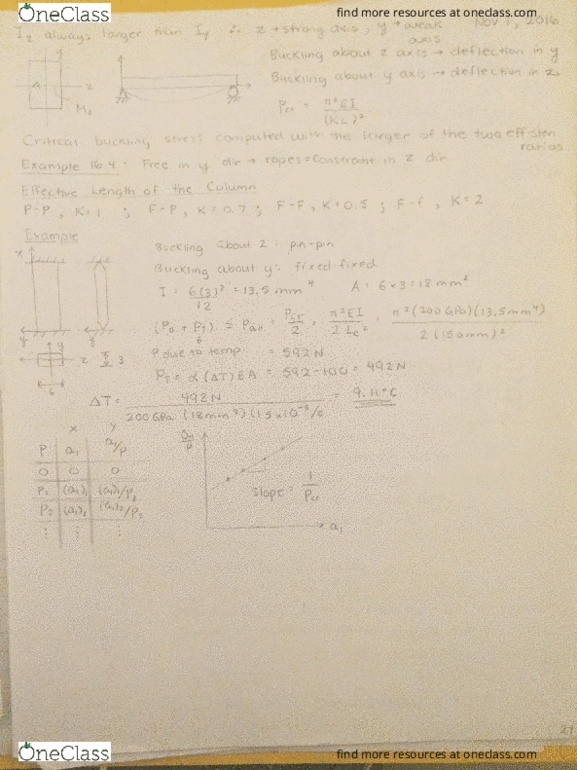 OneClass find more resources at oneclass.com
Nov 1, 2016
Iz always larger than Iy ∴ z → strong axis, y → weak axis
Buckling about z axis → deflection in y
Buckling about y axis → deflection in z
Pcr = π²EI / (KL)²
Critical buckling stress computed with the larger of the two eff slen ratios
Example 16.4: Free in y dir → ropes = constraint in z dir
Effective Length of the Column
P-P, K=1 ; F-P, K=0.7 ; F-F, K=0.5 ; F-f, K=2
Example
Buckling about z: pin-pin
Buckling about y: fixed-fixed
I = 6(3)³ / 12 = 13.5 mm⁴ A = 6×3 = 18 mm²
(P0 + PT) ≤ Pall = Pcr / 2 = π²EI / 2 Le² = π²(200 GPa)(13.5mm⁴) / 2(150mm)²
P due to temp = 592 N
PT = α(ΔT)EA = 592-100 = 492N
ΔT = 492N / 200 GPa (18mm²)(15x10⁻⁶/c) = 9.11°C
x y
P a1 a1/P
0 0 0
P1 (a1)1 (a1)1/P1
P2 (a1)2 (a1)2/P2
a1/P
slope = 1 / Pcr
a1
27
OneClass find more resources at oneclass.com